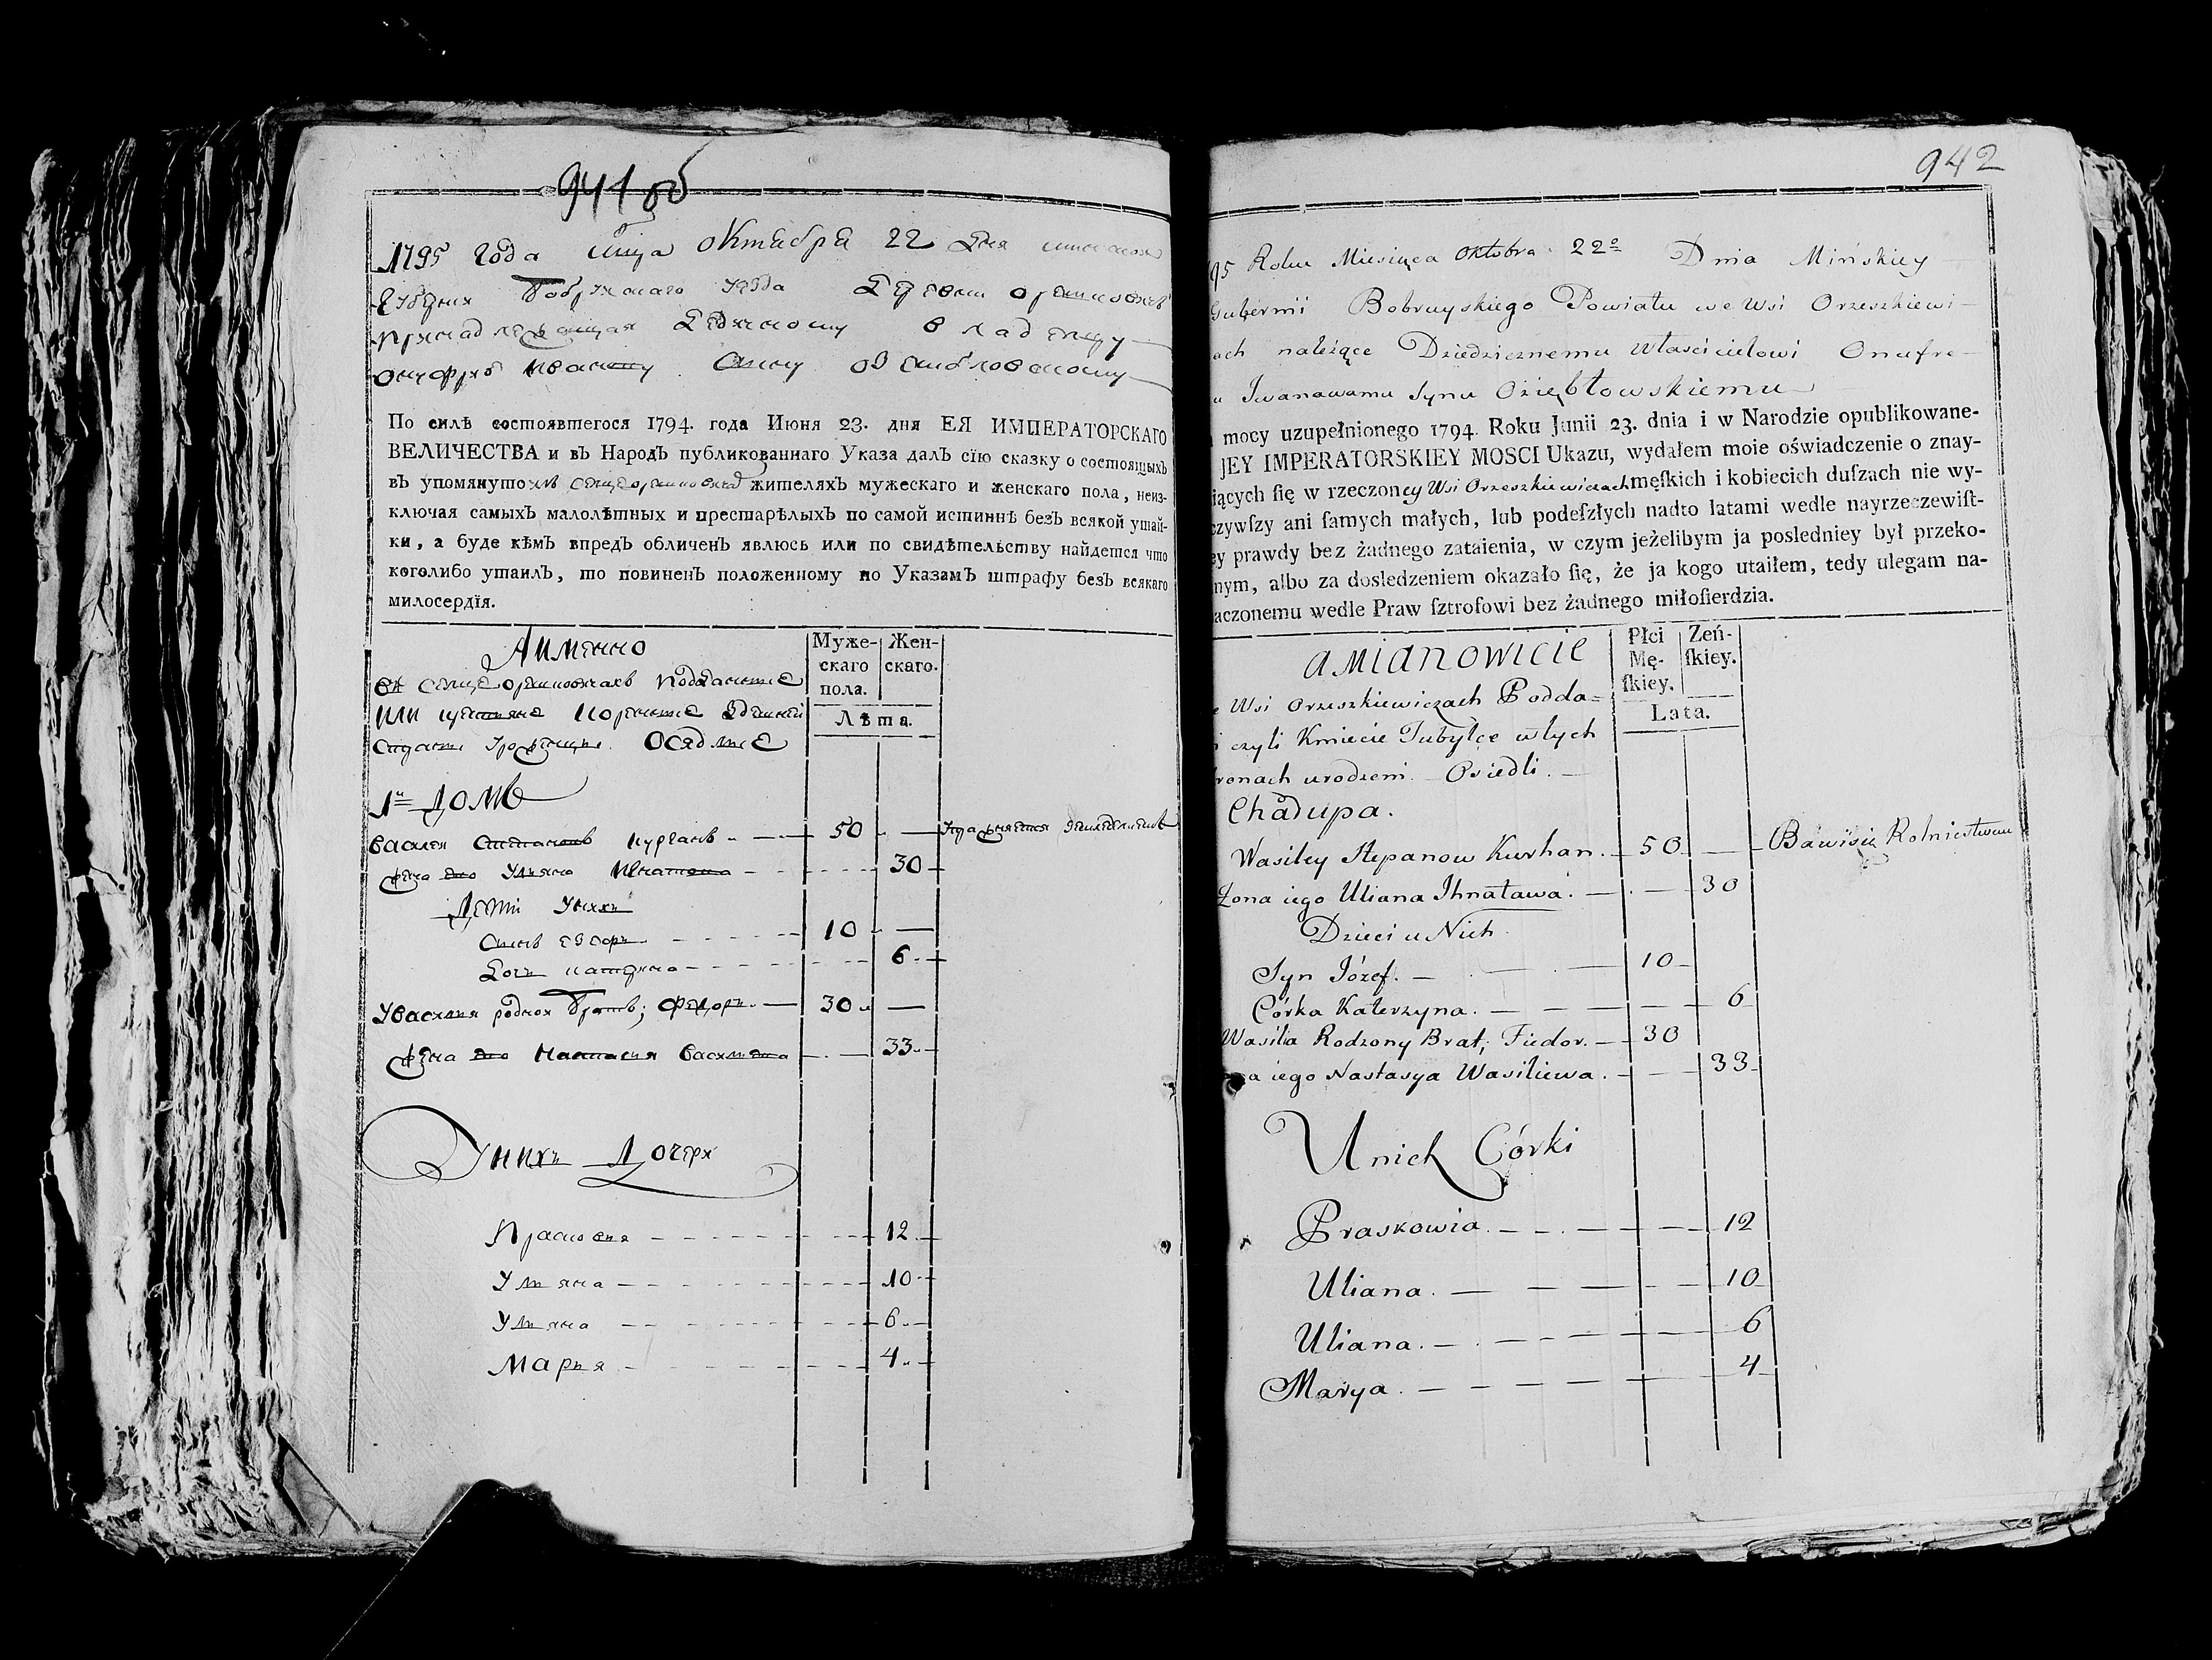 941 об
1795 года мсца Октября 22 дня минской
губерни Бобруского уезда деревни орешковичь
принадлежащая владелцу
онуфрию Иванову сыну
По силѣ состоявшегося 1794. года Июня 23. дня ЕЯ ИМПЕРАТОРСКАГО
ВЕЛИЧЕСТВА и въ Народѣ публикованнаго Указа далъ сїю сказку о состоящыхъ
въ упомянутохъ жителяхъ мужескаго и женскаго пола, неиз-
ключая самыхъ малолѣтныхъ и престарѣлыхъ по самой истиннѣ безъ всякой утай-
ки, а буде кѣмъ впредъ обличенъ явлюсь или по свидѣтельству найдется что
коголибо утаилъ, то повиненъ положенному по Указамъ штрафу безъ всякаго
милосердїя.
Аимянно
Муже-
скаго
пола.
Жен-
скаго.
Лѣта.
подданные
или Осядлие
1й домъ
Василя Степановъ Курганъ 50
жена ево Уляна Игнатова 30
Дети уних
Сынъ 10
Доч катерина 6
У Василия родной братъ; Федоръ 30
жена ево Настасия Василева 33
Уних Дочери
Прасковя 12
Уляна 10
Уляна 6
Маръя 4
942
95 Roku Miesiąca Oktobra 22º Dnia Mińskiey
Gubernii Bobruyskiego Powiatu we Wsi Orzeszkiewi-
ach należące Dziedzicznemu Własćicielowi Onufre-
u Iwanawamu Synu Oziębłowskiemu
mocy uzupełnionego 1794. Roku Junii 23. dnia i w Narodzie opublikowane-
JEY IMPERATORSKIEY MOSCI Ukazu, wydałem moie oświadczenie o znay-
iących ſię w rzeczoney Wsi Orzeszkiewiczach męſkich i kobiecich duſzach nie wy-
czywſzy ani ſamych małych, lub podeſzłych nadto latami wedle nayrzeczewiſt-
ey prawdy bez żadnego zataienia, w czym jeżelibym ja posledniey był przeko-
nym, albo za dosledzeniem okazało ſię, że ja kogo utaiłem, tedy ulegam na-
aczonemu wedle Praw ſztrofowi bez żadnego miłoſierdzia.
a MIANOWICIE
Płci
Mę-
ſkiey.
Zeń-
ſkiey.
Lata.
e Wsi Orzeszkiewiczach Podda-
i czyli Kmiecie Tubylce wtych
tronach urodzeni. Osiedli.
Chadupa.
Wasiley Stepanow Kurhan. 50 Bawisię Rolnictwem
Żona iego Uliana Ihnatawa. 30
Dzieci u Nich
Syn Józef. 10
Córka Katerzyna. 6
Wasila Rodzony Brat, Fiedor. 30
na iego Nastasya Wasiliewa. 33
U nich Córki
Praskowia. 12
Uliana. 10
Uliana. 6
Marya. 4